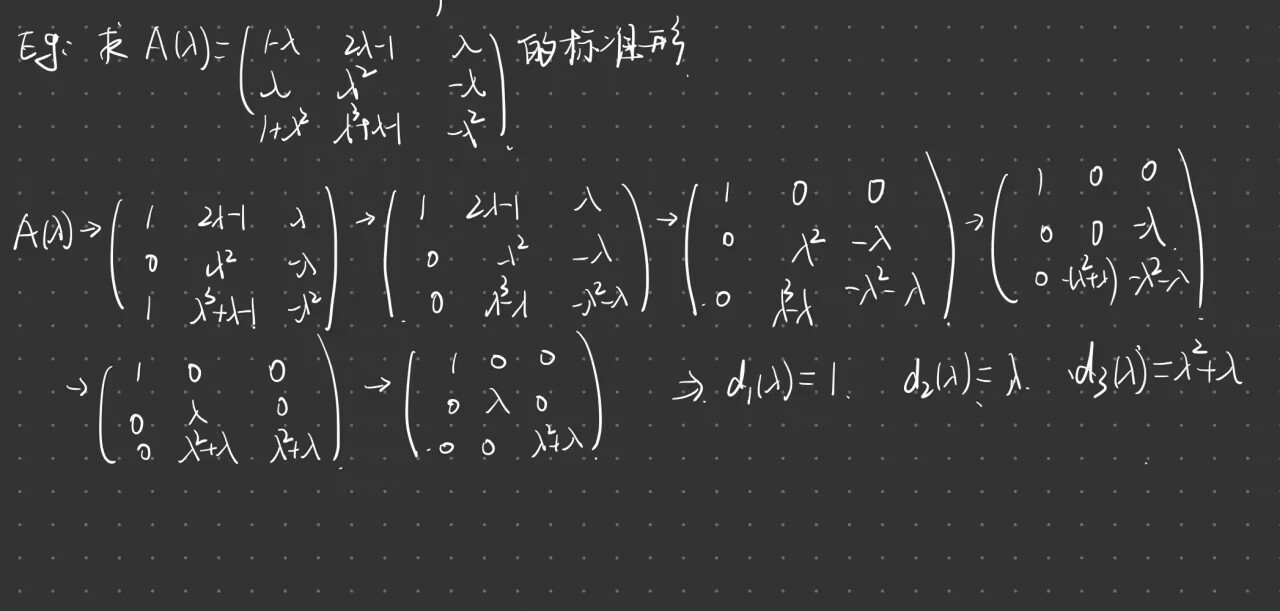 Eg: 求 A(λ)=(1-λ 2λ-1 λ; λ λ² -λ; 1+λ² λ³+λ-1 -λ²) 的标准形
A(λ)→(1 2λ-1 λ; 0 λ² -λ; 1 λ³+λ-1 -λ²)→(1 2λ-1 λ; 0 λ² -λ; 0 λ³-λ -λ²-λ)→(1 0 0; 0 λ² -λ; 0 λ³-λ -λ²-λ)→(1 0 0; 0 0 -λ; 0 -(λ²+λ) -λ²-λ)
→(1 0 0; 0 λ 0; 0 λ²+λ λ²+λ)→(1 0 0; 0 λ 0; 0 0 λ²+λ) ⇒ d₁(λ)=1. d₂(λ)=λ. d₃(λ)=λ²+λ